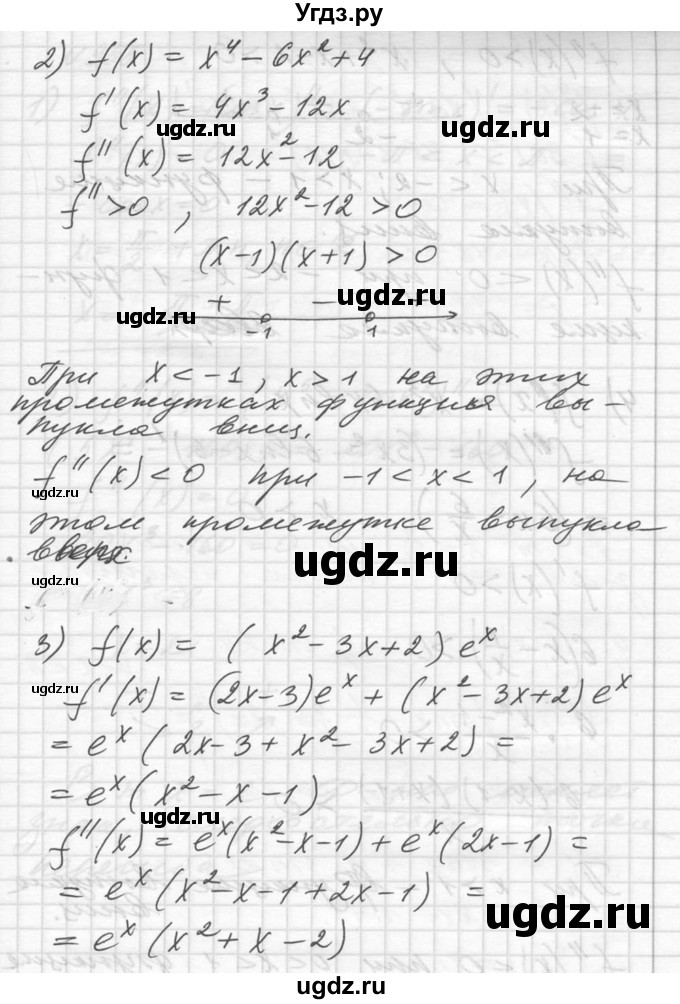 Угдз.ру
2) f(x) = x⁴ − 6x² + 4
f'(x) = 4x³ − 12x
ugdz.ru
ugdz.ru
f''(x) = 12x² − 12
ugdz.ru
f'' > 0 , 12x² − 12 > 0
(x−1)(x+1) > 0
+ − +
ugdz.ru
ugdz.ru
-1 1
При x < −1, x > 1 на этих
промежутках функция вы-
пукла вниз.
f''(x) < 0 при −1 < x < 1, на
ugdz.ru
этом промежутке выпукла
вверх
ugdz.ru
ugdz.ru
3) f(x) = (x² − 3x + 2) eˣ
f'(x) = (2x−3)eˣ + (x² − 3x + 2) eˣ
ugdz.ru
= eˣ (2x − 3 + x² − 3x + 2) =
= eˣ (x² − x − 1)
ugdz.ru
ugdz.ru
f''(x) = eˣ(x² − x − 1) + eˣ(2x − 1) =
= eˣ (x² − x − 1 + 2x − 1) =
ugdz.ru
= eˣ (x² + x − 2)